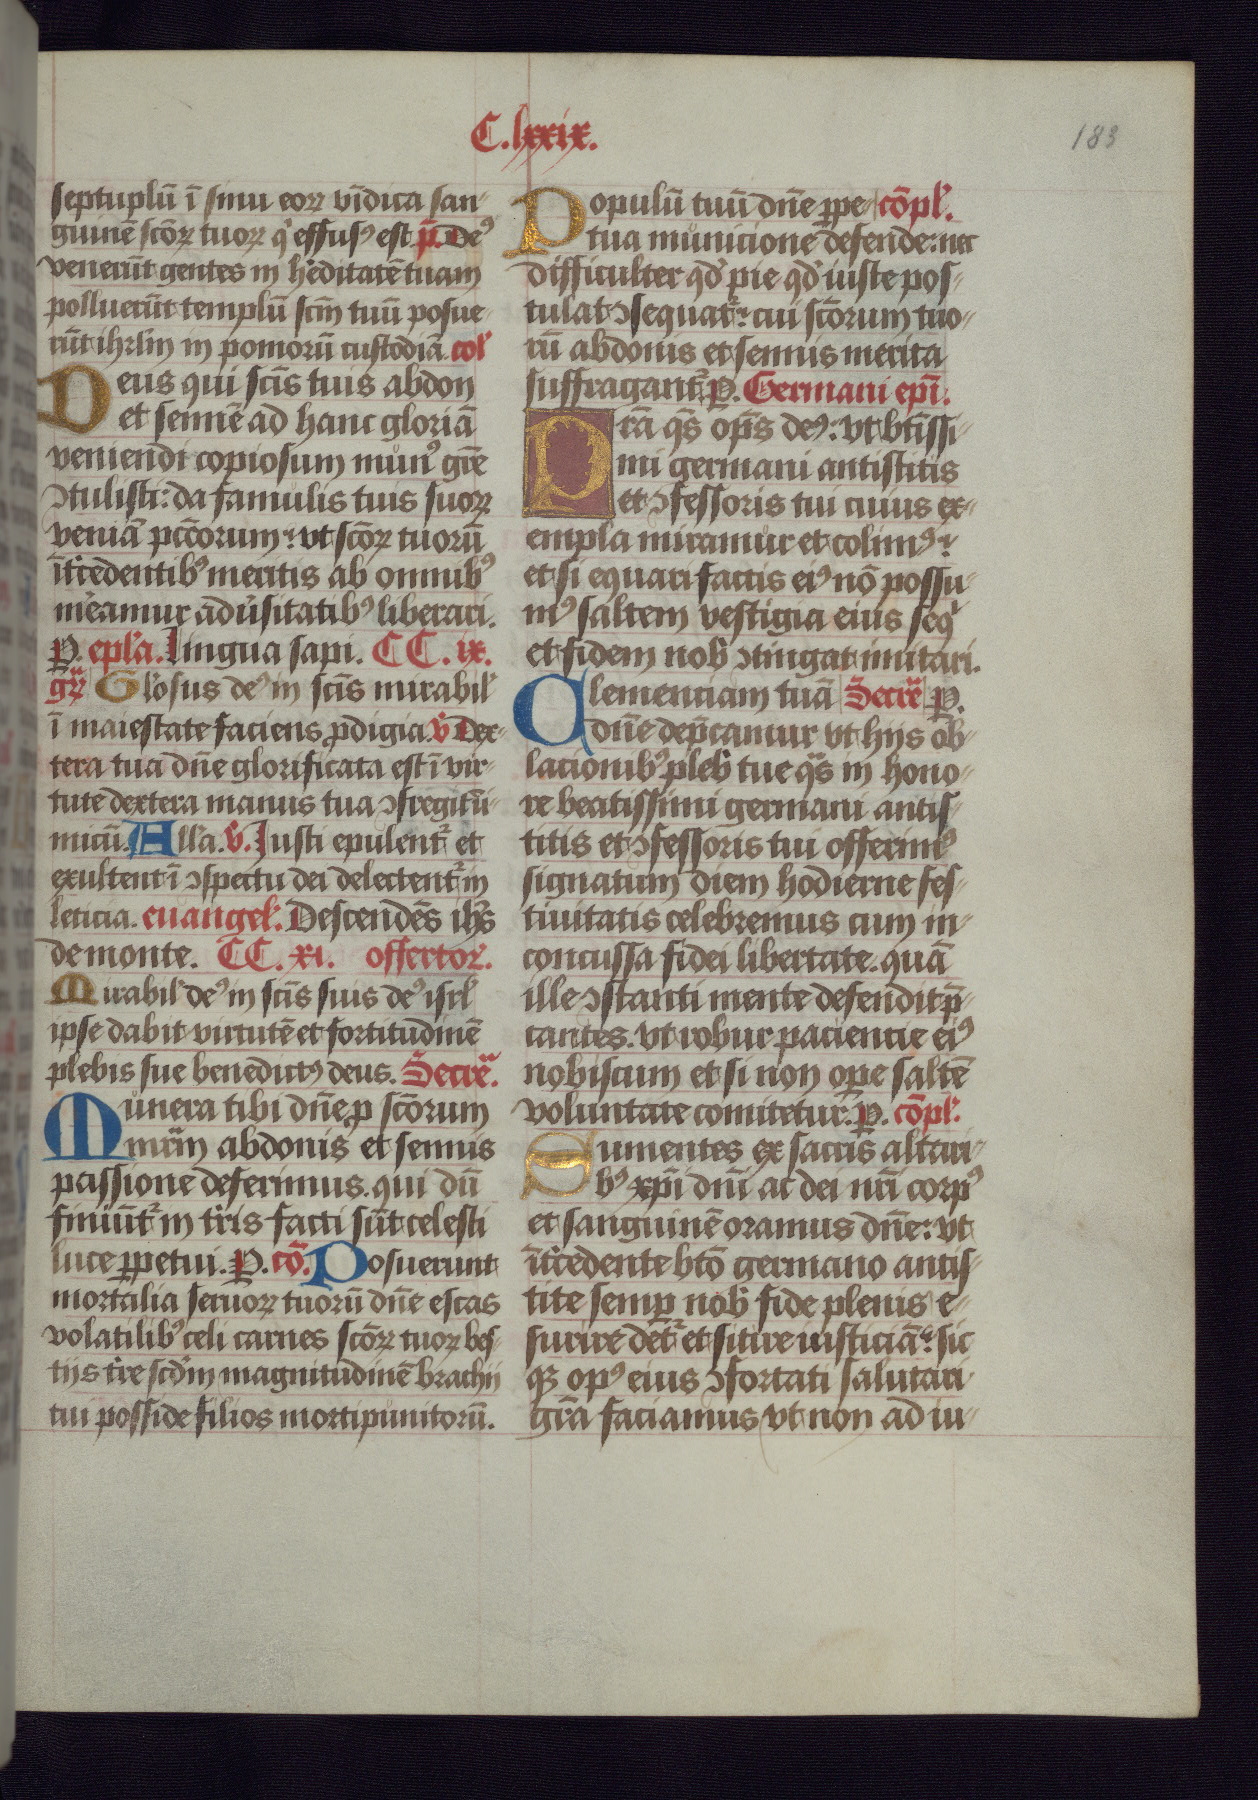 C.lxxix.
183
septuplū ī sinu eoꝝ vīdica san-
guinē scōꝝ tuoꝝ qͥ effusꝰ est p̄. Deꝰ
venerūt gentes in h'editatē tuam
polluerūt templū scm̄ tuū posue-
rūt ihrl'm in pomorū custodiā. col'
Deus qui scīs tuis abdon
et sennē ad hanc gloriā
veniendi copiosum munꝰ grē
ꝯtulisti: da famulis tuis suoꝝ
veniā pccōrum: vt scōꝝ tuorū
īt'cedentibꝰ meritis ab omnibꝰ
m'eamur adu'sitatibꝰ liberari.
P. epl'a. Lingua sapi. CC. ix.
gr̄ Gl'osus deꝰ in scīs mirabil'
ī maiestate faciens ꝓdigia. v̄ Dex-
tera tua dn̄e glorificata est ī vir-
tute dextera manus tua ꝯfregit ī-
micū. All'a. v̄. Iusti epulent᷑ et
exultent ī ꝯspectu dei delectent᷑ in
leticia. euangel'. Descendēs ihs̄
de monte. CC. xi. offertor'.
Mirabil' deꝰ in scīs suis deꝰ isrl'
ipse dabit virtutē et fortitudinē
plebis sue benedictꝰ deus. Secre͞.
Munera tibi dn̄e ꝓ scōrum
mr̄m abdonis et sennis
passione deferimus. qui dū
finiūt᷑ in t'ris facti sūt celesti
luce ꝑpetui. P. cō. Posuerunt
mortalia seruoꝝ tuorū dn̄e escas
volatilibꝰ celi carnes scōꝝ tuoꝝ bes-
tijs t're scd'm magnitudinē brachij
tui posside filios morti punitorū.
Populū tuū dn̄e ꝑpe- cōpl'.
tua municione defende: nec
difficulter qd' pie qd' iuste pos-
tulat ꝯsequat᷑: cui scōrum tuo-
rū abdonis et sennis merita
suffragant᷑. P. Germani epī.
Prā qs̄ op̄s deꝰ: vt btīssi-
mi germani antistitis
et ꝯfessoris tui cuius ex-
empla miramur et colimꝰ:
et si equari factis eiꝰ nō possu-
mꝰ saltem vestigia eius seqͥ
et fidem nob' ꝯtingat imitari.
Clemenciam tuā Secre͞ P.
dn̄e dep̄camur vt hijs ob-
lacionibꝰ pleb' tue qͣs in hono-
re beatissimi germani antis-
titis et ꝯfessoris tui offerimꝰ
signatum diem hodierne fes-
tiuitatis celebremus cum in-
concussa fidei libertate. quā
ille ꝯstanti mente defendit p̄-
cantes. vt robur paciencie eiꝰ
nobiscum et si non ope saltē
voluntate comitetur. P. cōpl'.
Sumentes ex sacris altari-
bꝰ xp̄i dn̄i ac dei nr̄i corpꝰ
et sanguinē oramus dn̄e: vt
īt'cedente btō germano antis-
tite semp̱ nob' fide plenis e-
surire det᷑ et sitire iusticiā: sic
qꝫ opꝰ eius ꝯfortati salutari
gr̄a faciamus vt non ad iu-